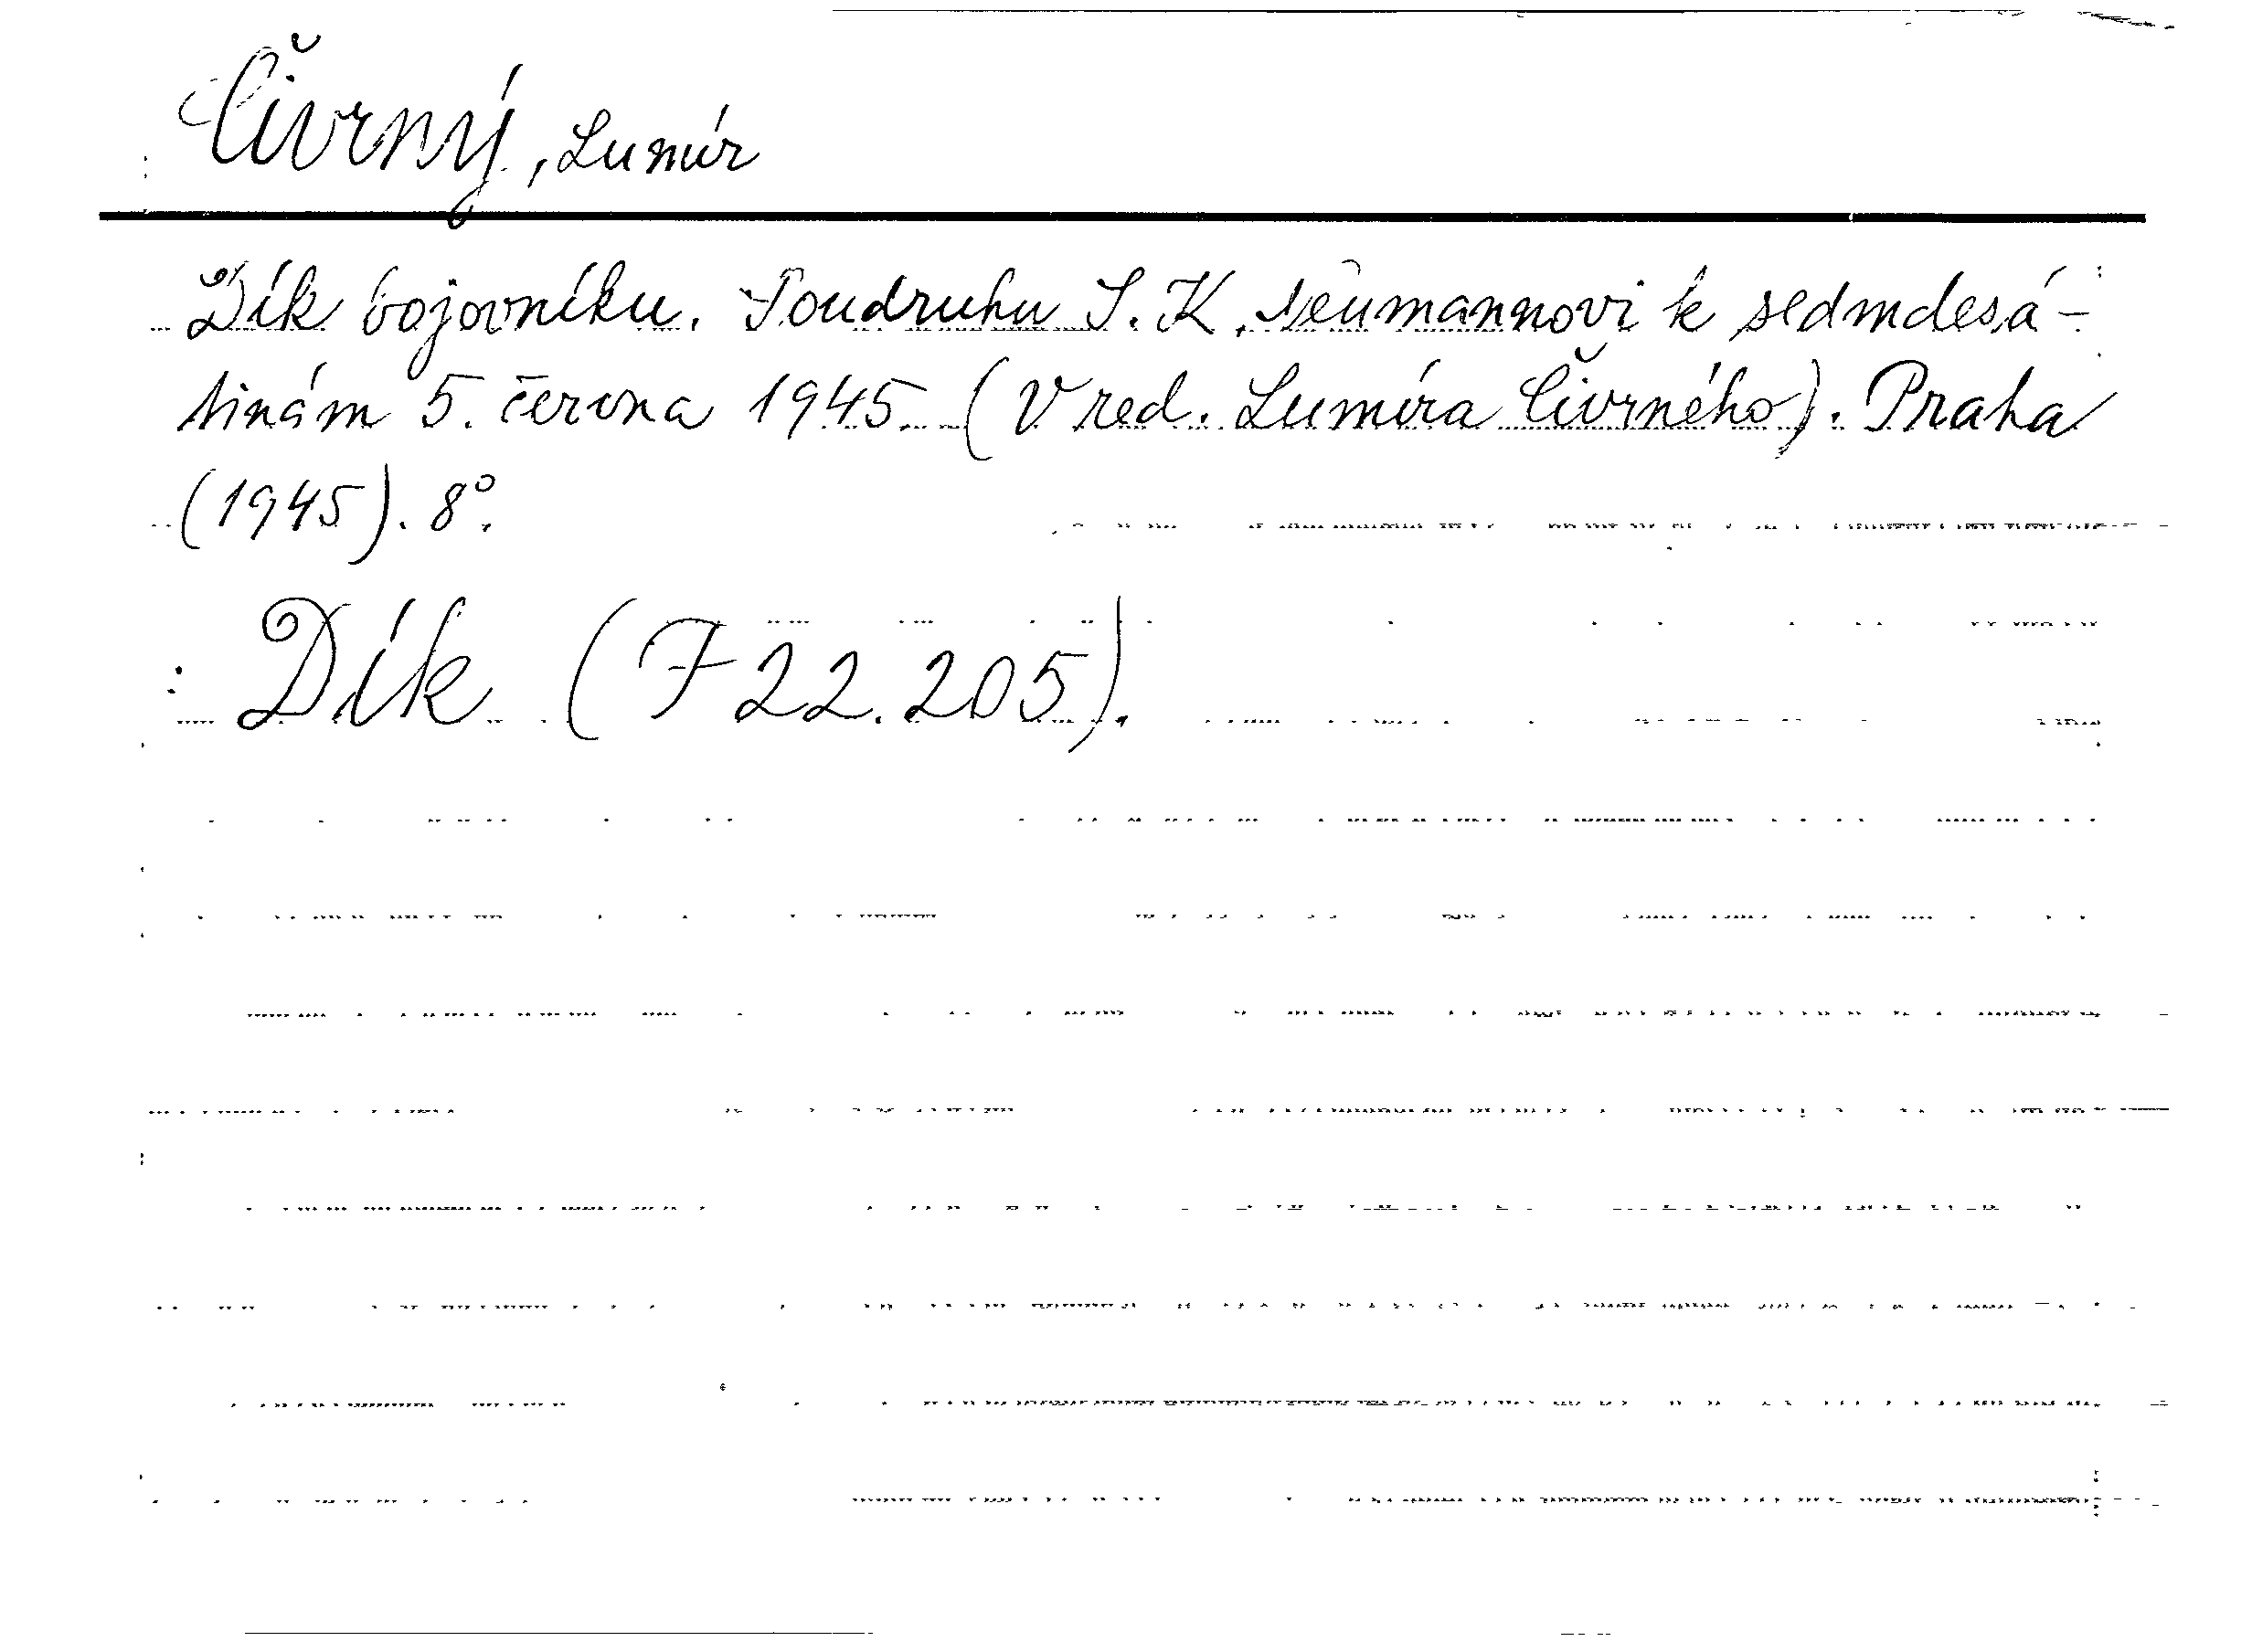 Čivrný, Lumír
Dík bojovníku. Soudruhu S. K. Neumannovi k sedmdesá-
tinám 5. června 1945. (V red. Lumíra Čivrného). Praha
(1945). 8°.
Dík (F 22.205).